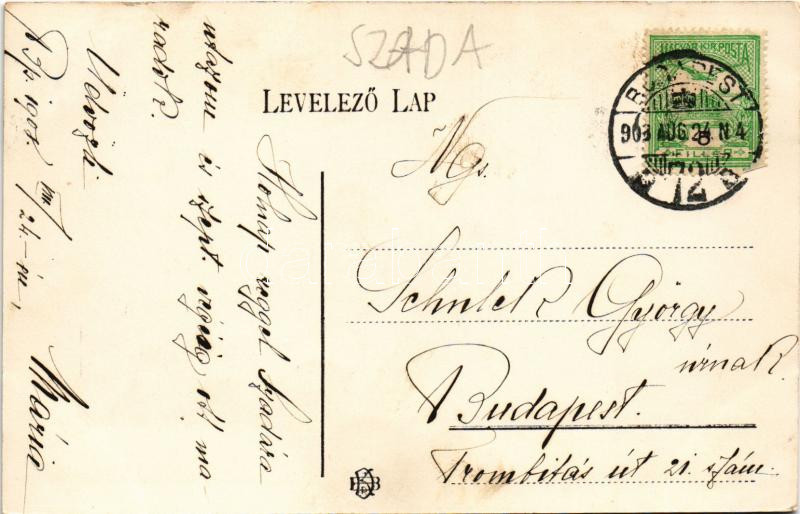 SZADA
LEVELEZŐ LAP
MAGYAR KIR. POSTA
BUDAPEST
903 AUG 24 N 4
72
FILLÉR
Ngs.
Schulek György
úrnak
Budapest.
Trombitás út 21. szám.
Holnap reggel Szadára
utazom és szept. végéig ott ma-
radok.
Üdvözli
Mária
Bp. 1908. VIII/24-én,